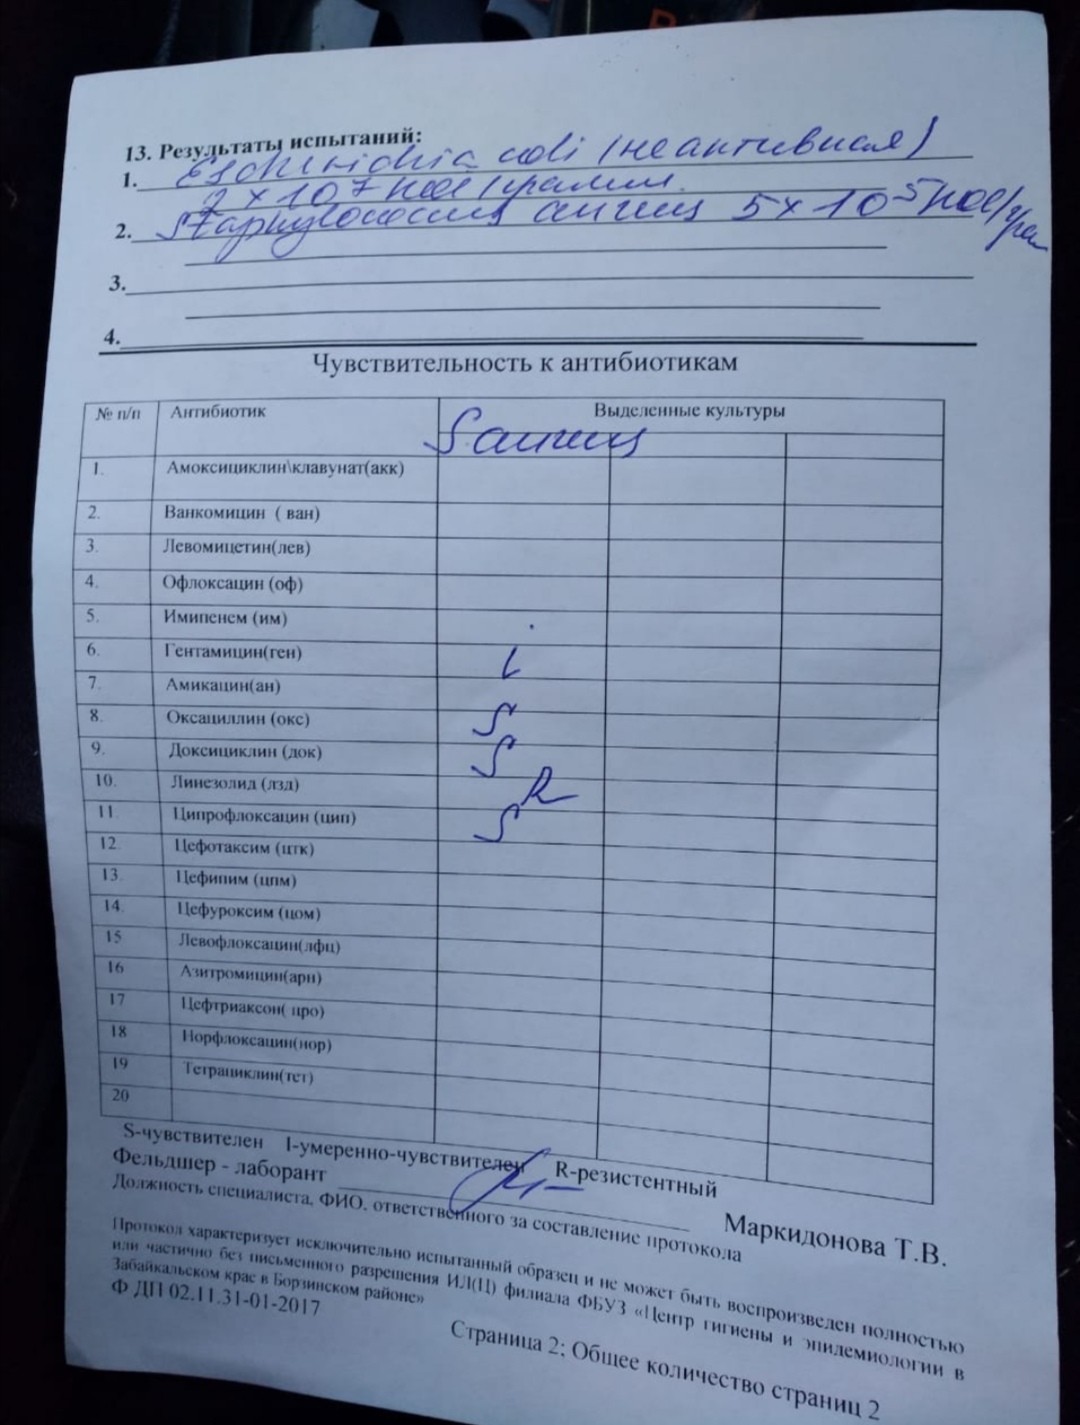 13. Результаты испытаний:
1. Escherichia coli (неактивная)
2 x 10 7 кое/грамм.
2. Staphylococcus aureus 5 x 10 5 кое/гра
3.
4.
Чувствительность к антибиотикам
№ п/п Антибиотик Выделенные культуры
S aureus
1. Амоксициклин\клавунат(акк)
2. Ванкомицин ( ван)
3. Левомицетин(лев)
4. Офлоксацин (оф)
5. Имипенем (им)
6. Гентамицин(ген) i
7. Амикацин(ан)
8. Оксациллин (окс) S
9. Доксициклин (док) S
10. Линезолид (лзд) R
11 Ципрофлоксацин (цип) S
12. Цефотаксим (цтк)
13. Цефипим (цпм)
14. Цефуроксим (цом)
15 Левофлоксацин(лфц)
16 Азитромицин(арн)
17 Цефтриаксон( цро)
18 Норфлоксацин(нор)
19 Тетрациклин(тет)
20
S-чувствителен I-умеренно-чувствителен R-резистентный
Фельдшер - лаборант Маркидонова Т.В.
Должность специалиста, ФИО, ответственного за составление протокола
Протокол характеризует исключительно испытанный образец и не может быть воспроизведен полностью
или частично без письменного разрешения ИЛ(Ц) филиала ФБУЗ «Центр гигиены и эпидемиологии в
Забайкальском крае в Борзинском районе»
Ф ДП 02.11.31-01-2017
Страница 2; Общее количество страниц 2